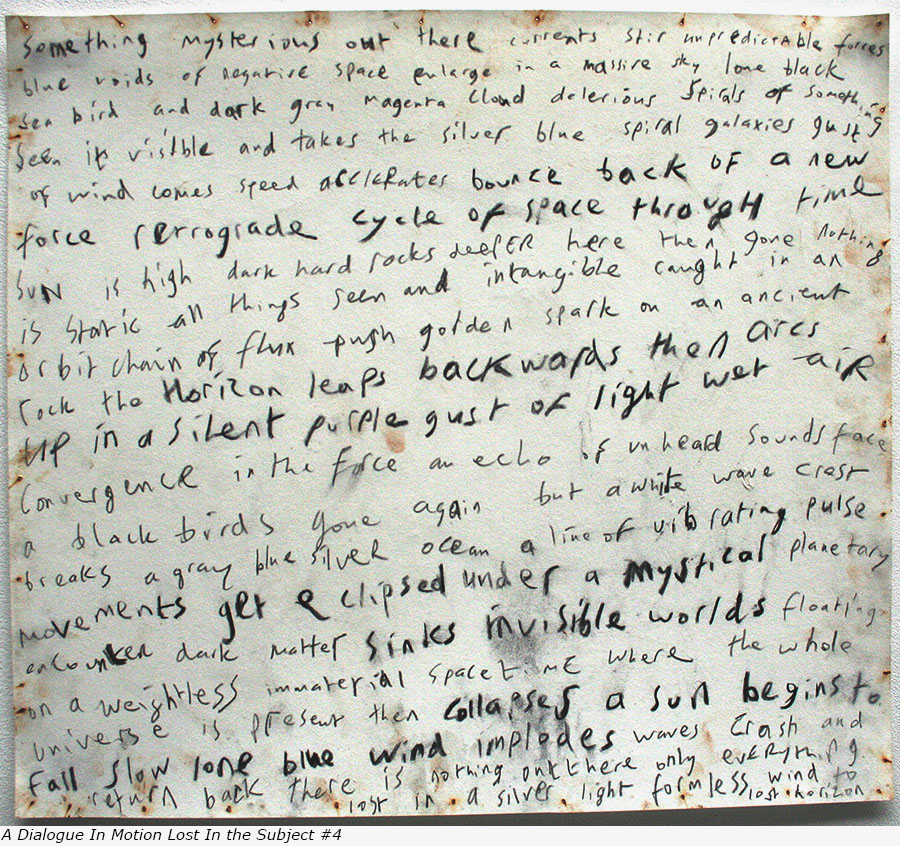 Something mysterious out there currents stir unpredictable forces
blue voids of negative space enlarge in a massive sky lone black
sea bird and dark gray magenta cloud delerious spirals of something
seen it visible and takes the silver blue spiral galaxies gust
of wind comes speed acclerates bounce back of a new
force retrograde cycle of space through time
sun is high dark hard rocks deeper here then gone nothing
is static all things seen and intangible caught in an
orbit chain of flux push golden spark on an ancient
rock the Horizon leaps backwards then arcs
up in a silent purple gust of light wet air
Convergence in the force an echo of unheard sounds face
a black birds gone again but a white wave crest
breaks a gray blue silver ocean a line of vibrating pulse
movements get eclipsed under a mystical planetary
encounter dark matter sinks invisible worlds floating
on a weightless immaterial spacetime where the whole
universe is present then collapses a sun begins to
fall slow lone blue wind implodes waves crash and
return back there is nothing out there only everything
lost in a silver light formless wind to
lost horizon
A Dialogue In Motion Lost In the Subject #4